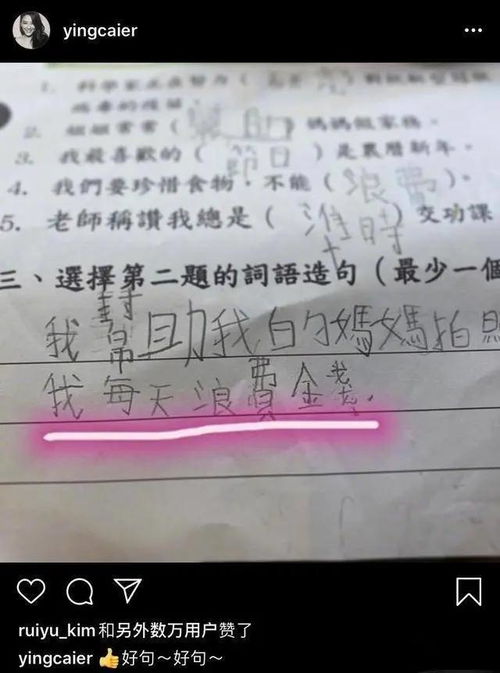 yingcaier
1. 科學家正在努力（
2. 姐姐常常（幫助）媽媽做家務。
3. 我最喜歡的（節日）是農曆新年。
4. 我們要珍惜食物，不能（浪費）。
5. 老師稱讚我總是（準時）交功課
三、選擇第二題的詞語造句（最少一個
我幫助我的媽媽拍照
我每天浪費金錢。
ruiyu_kim和另外数万用户赞了
yingcaier 👍好句～好句～